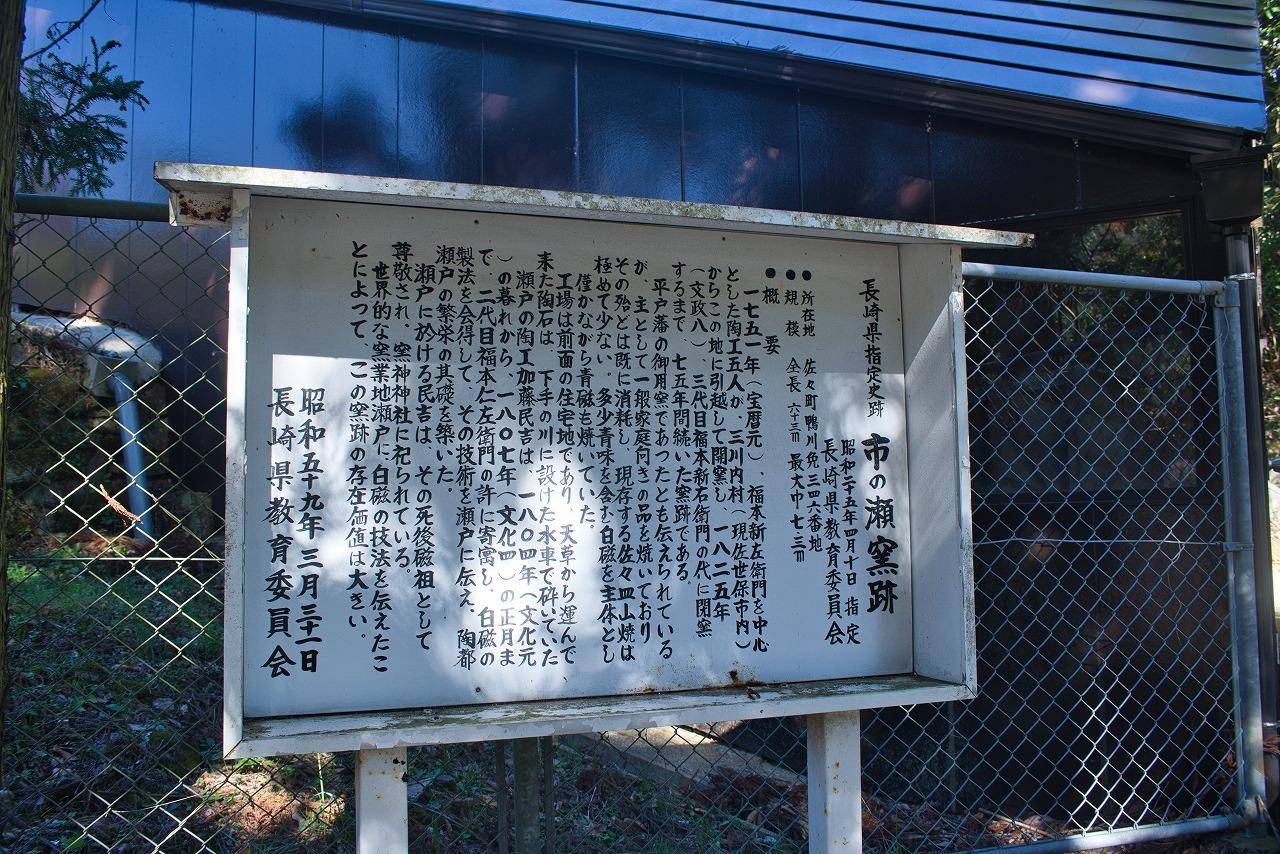 長崎県指定史跡 市の瀬窯跡
昭和二十五年四月十日 指定
長崎県教育委員会
●所在地 佐々町鴨川免三四六番地
●規模 全長 六十三m 最大巾七・三m
●概要
一七五一年(宝暦元)、福本新左衛門を中心
とした陶工五人が、三川内村(現佐世保市内)
からこの地に引越して開窯し、一八二五年
(文政八)、三代目福本新右衛門の代に閉窯
するまで、七五年間続いた窯跡である。
平戸藩の御用窯であつたとも伝えられている
が、主として一般家庭向きの品を焼いており
その殆どは既に消耗し、現存する佐々皿山焼は
極めて少ない。多少青味を含む白磁を主体とし
僅かながら青磁も焼いていた。
工場は前面の住宅地であり、天草から運んで
来た陶石は、下手の川に設けた水車で砕いていた
瀬戸の陶工加藤民吉は、一八〇四年(文化元
)の暮れから、一八〇七年(文化四)の正月ま
で、二代目福本仁左衛門の許に寄寓し、白磁の
製法を会得して、その技術を瀬戸に伝え、陶都
瀬戸の繁栄の基礎を築いた。
瀬戸に於ける民吉は、その死後磁祖として
尊敬され、窯神神社に祀られている。
世界的な窯業地瀬戸に、白磁の技法を伝えたこ
とによって、この窯跡の存在価値は大きい。
昭和五十九年三月三十一日
長崎県教育委員会